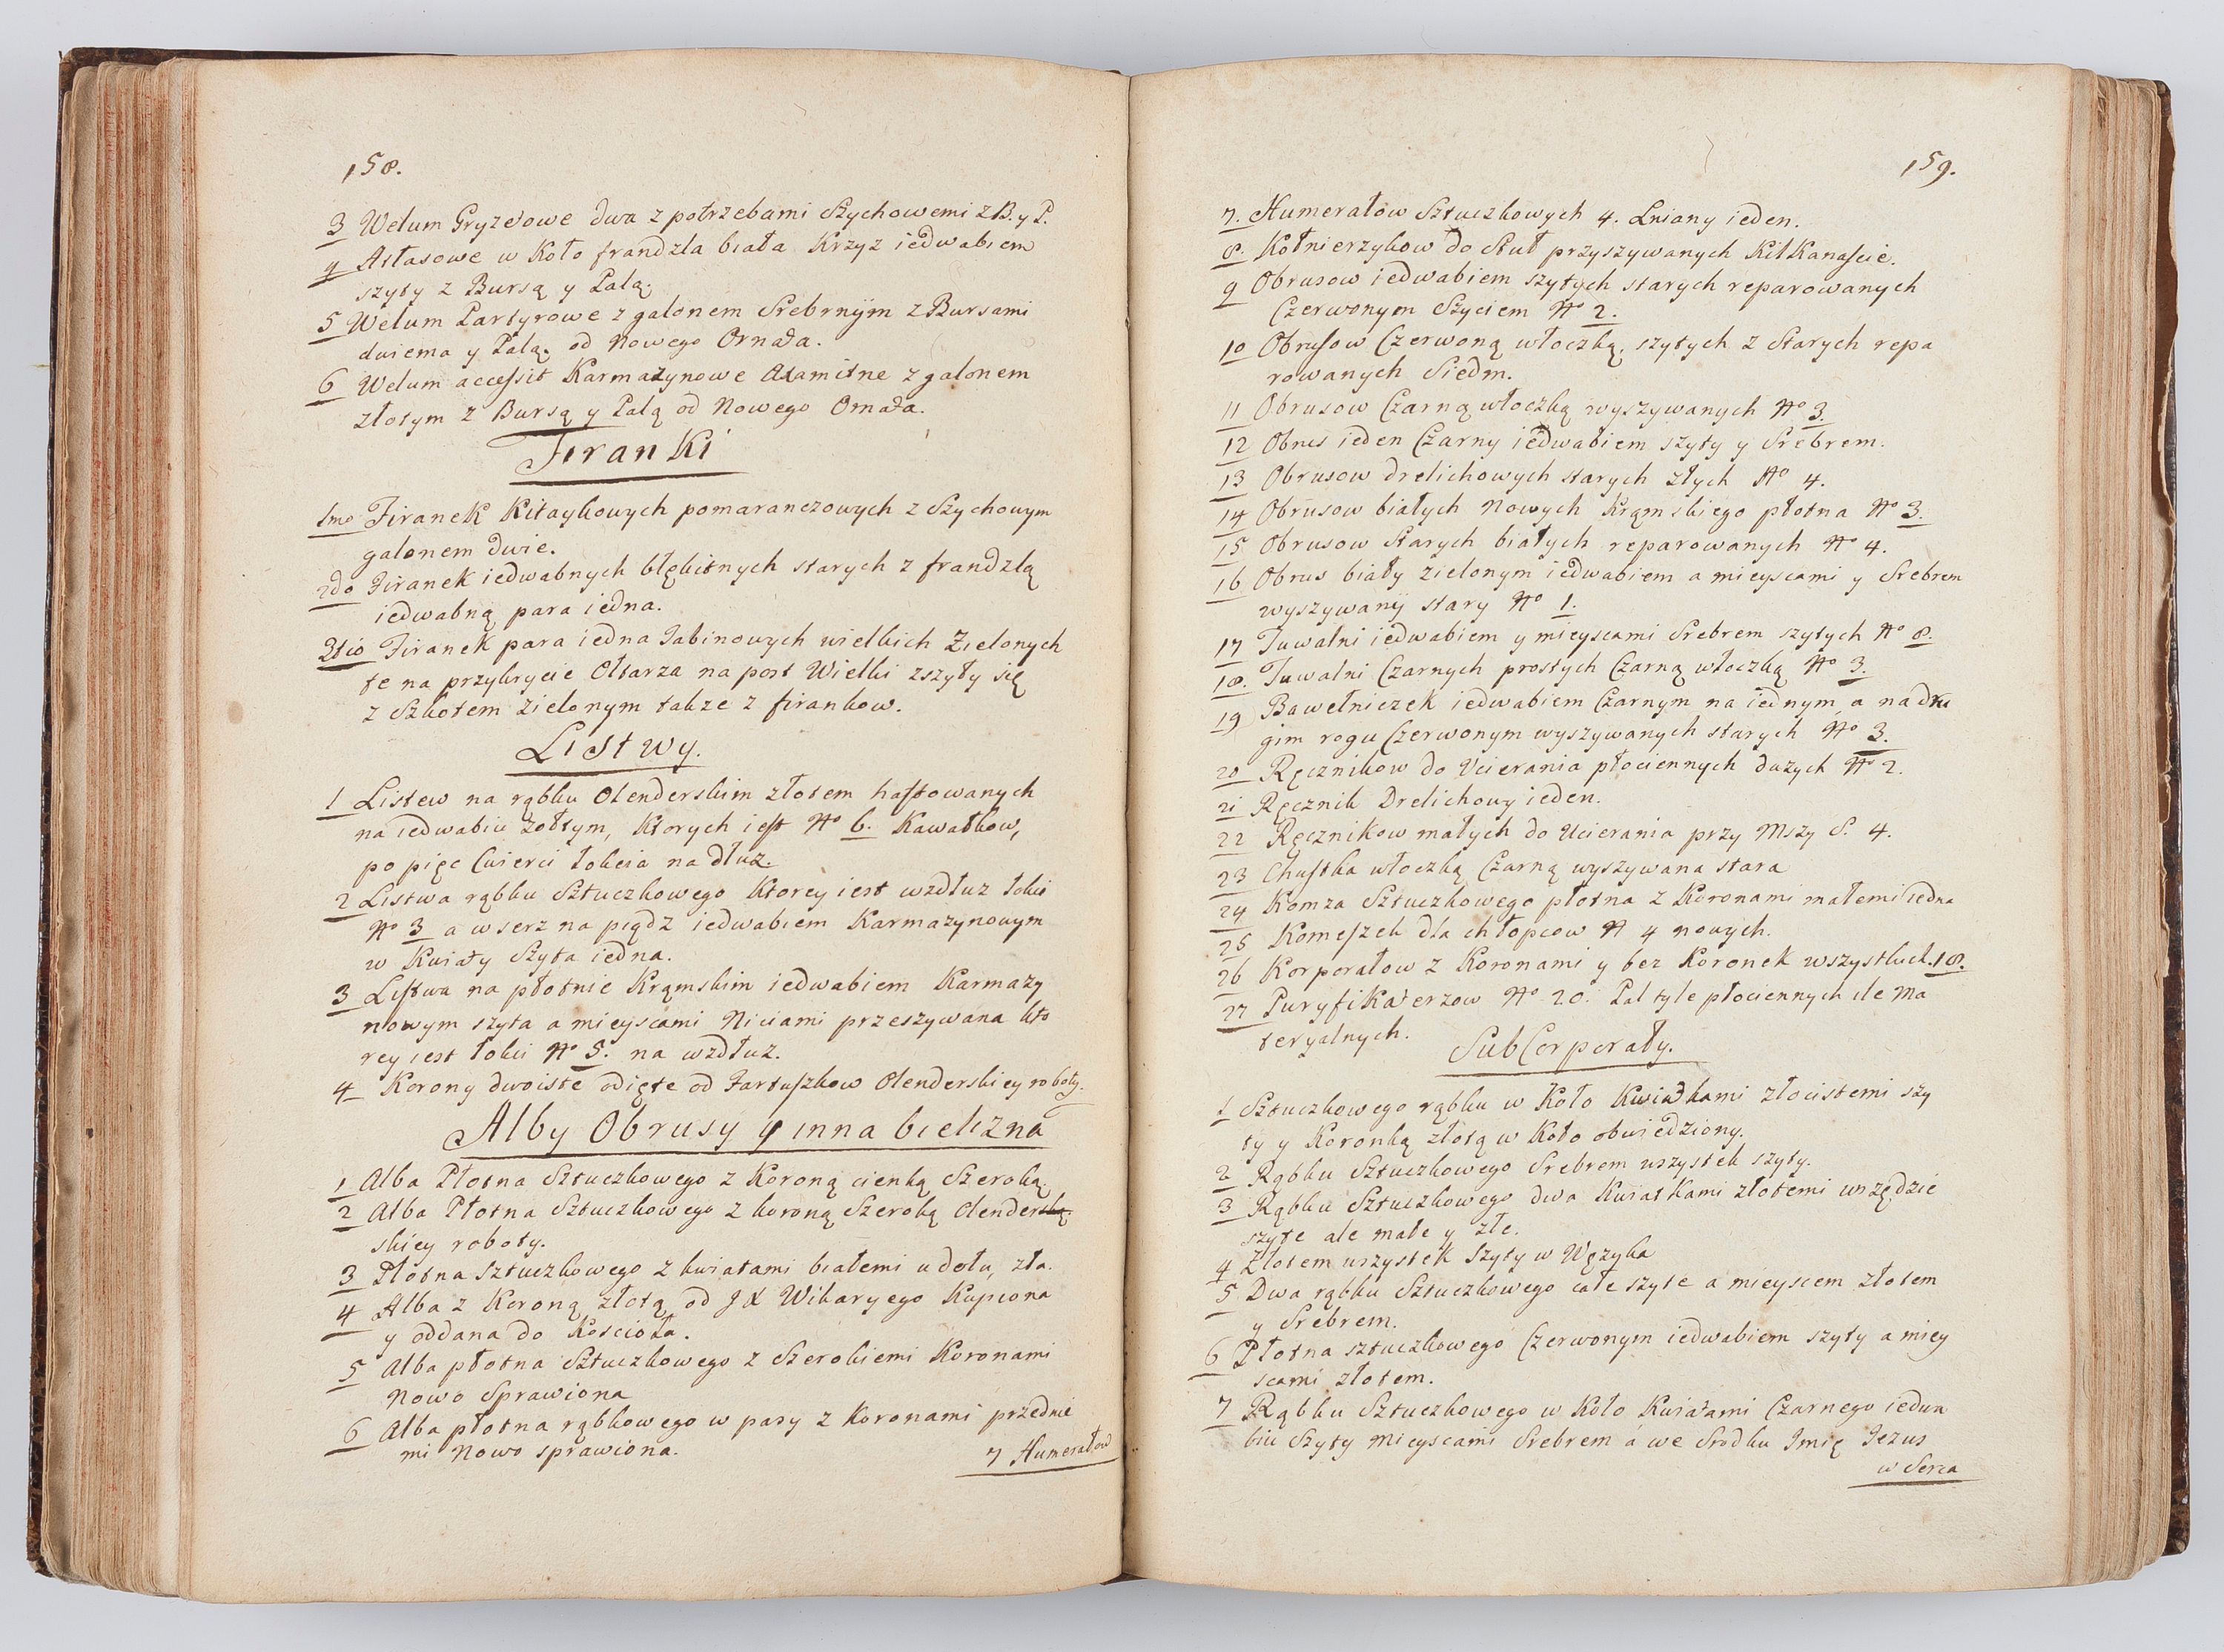 158.
3 Welum Gryzetowe dwa z potrzebami Szychowemi z B. y P.
4 Atłasowe w Koło frandzla biała Krzyz iedwabiem
szyty z Bursą y Palą.
5 Welum Partyrowe z galonem Srebrnÿm z Bursami
dwiema y Palą. od Nowego Ornata.
6 Welum accessit Karmazynowe Axamitne z galonem
złotym z Bursą y Palą od Nowego Ornata.
Firanki
1mo Firanek Kitaykowych pomaranczowych z Szychowym
galonem dwie.
2do Firanek iedwabnych błękitnych starych z frandzlą
iedwabną para iedna.
3tio Firanek para iedna Tabinowych wielkich Zielonych
te na przykrycie Ołtarza na post Wielki zszyty się
z Szkotem zielonym takze z firankow.
Listwy.
1 Listew na rąbku Olenderskim złotem haftowanych
na iedwabiu zołtym, Ktorych iest No 6. Kawałkow,
po pięc Cwierci łokcia na dłuz.
2 Listwa rąbku Sztuczkowego Ktorey iest wzdłuz łokci
No 3 a wserz na piądz iedwabiem Karmazynowym
w Kwiaty Szyta iedna.
3 Listwa na płotnie Krąmskim iedwabiem Karmazy
nowym szyta a mieyscami Niciami przeszywana kto
rey iest łokci No 5. na wzdłuz.
4 Korony dwoiste odięte od Fartuszkow Olenderskiey roboty.
Alby Obrusy y inna bielizna
1 Alba Płotna Sztuczkowego z Koroną cienką Szeroką.
2 Alba Płotna Sztuczkowego z koroną Szeroką Olenderską
skiey roboty.
3 Płotna sztuczkowego z kwiatami białemi u dołu, zła.
4 Alba z Koroną złotą od J X Wikaryego Kupiona
y oddana do Koscioła.
5 Alba płotna Sztuczkowego z Szerokiemi Koronami
Nowo Sprawiona
6 Alba płotna rąbkowego w pasy z Koronami przednie
mi Nowo sprawiona.
7 Humerałow
159.
7. Humerałow Sztuczkowych 4. Lniany ieden.
8. Kołnierzykow do Stuł przyszywanych Kilkanascie.
9 Obrusow iedwabiem szytych starych reparowanych
Czerwonym Szyciem No 2.
10 Obrusow Czerwoną włoczką, szytych z Starych repa
rowanych Siedm.
11 Obrusow Czarną włoczką wyszywanych No 3
12 Obrus ieden Czarny iedwabiem szyty y Srebrem.
13 Obrusow drelichowych starych złych No 4.
14 Obrusow białych Nowych Krąmskiego płotna No 3.
15 Obrusow Starych białych reparowanych No 4.
16 Obrus biały zielonym iedwabiem a mieyscami y Srebrem
wyszywanÿ stary No 1.
17 Tuwalni iedwabiem y mieyscami Srebrem szytych No 8.
18. Tuwalni Czarnych prostych Czarną włoczką No 3.
19 Bawełniczek iedwabiem Czarnym na iednym a na dru
gim rogu Czerwonym wyszywanych starych No 3.
20 Ręcznikow do Ucierania płociennych duzych No 2.
21 Ręcznik Drelichowy ieden.
22 Ręcznikow małych do Ucierania przy Mszy S. 4.
23 Chustka włoczką Czarną wyszywana stara
24 Komza Sztuczkowego płotna z Koronami małemi iedna
25 Komeszek dla chłopcow N 4 nowych.
26 Korporałow z Koronami y bez Koronek wszystkich. 18.
27 Puryfikaterzow No 20. Pal tyle płociennych ile Ma
teryalnych.
SubCorporały.
1 Sztuczkowego rąbku w Koło Kwiadkami złocistemi szy
ty y Koronką złotą w Koło obwiedziony.
2 Rąbku Sztuczkowego Srebrem wszystek szyty.
3 Rąbku Sztuczkowego dwa Kwiatkami złotemi wszędzie
szyte ale małe y złe.
4 Złotem wszystek Szyty w Węzyka
5 Dwa rąbku Sztuczkowego całe szyte a mieyscem złotem
y Srebrem.
6 Płotna sztuczkowego Czerwonym iedwabiem szyty a miey
scami złotem.
7 Rąbku Sztuczkowego w Koło Kwiatami Czarnego iedwa
biu Szyty Mieyscami Srebrem á we Srodku Imię Jezus
w Serca